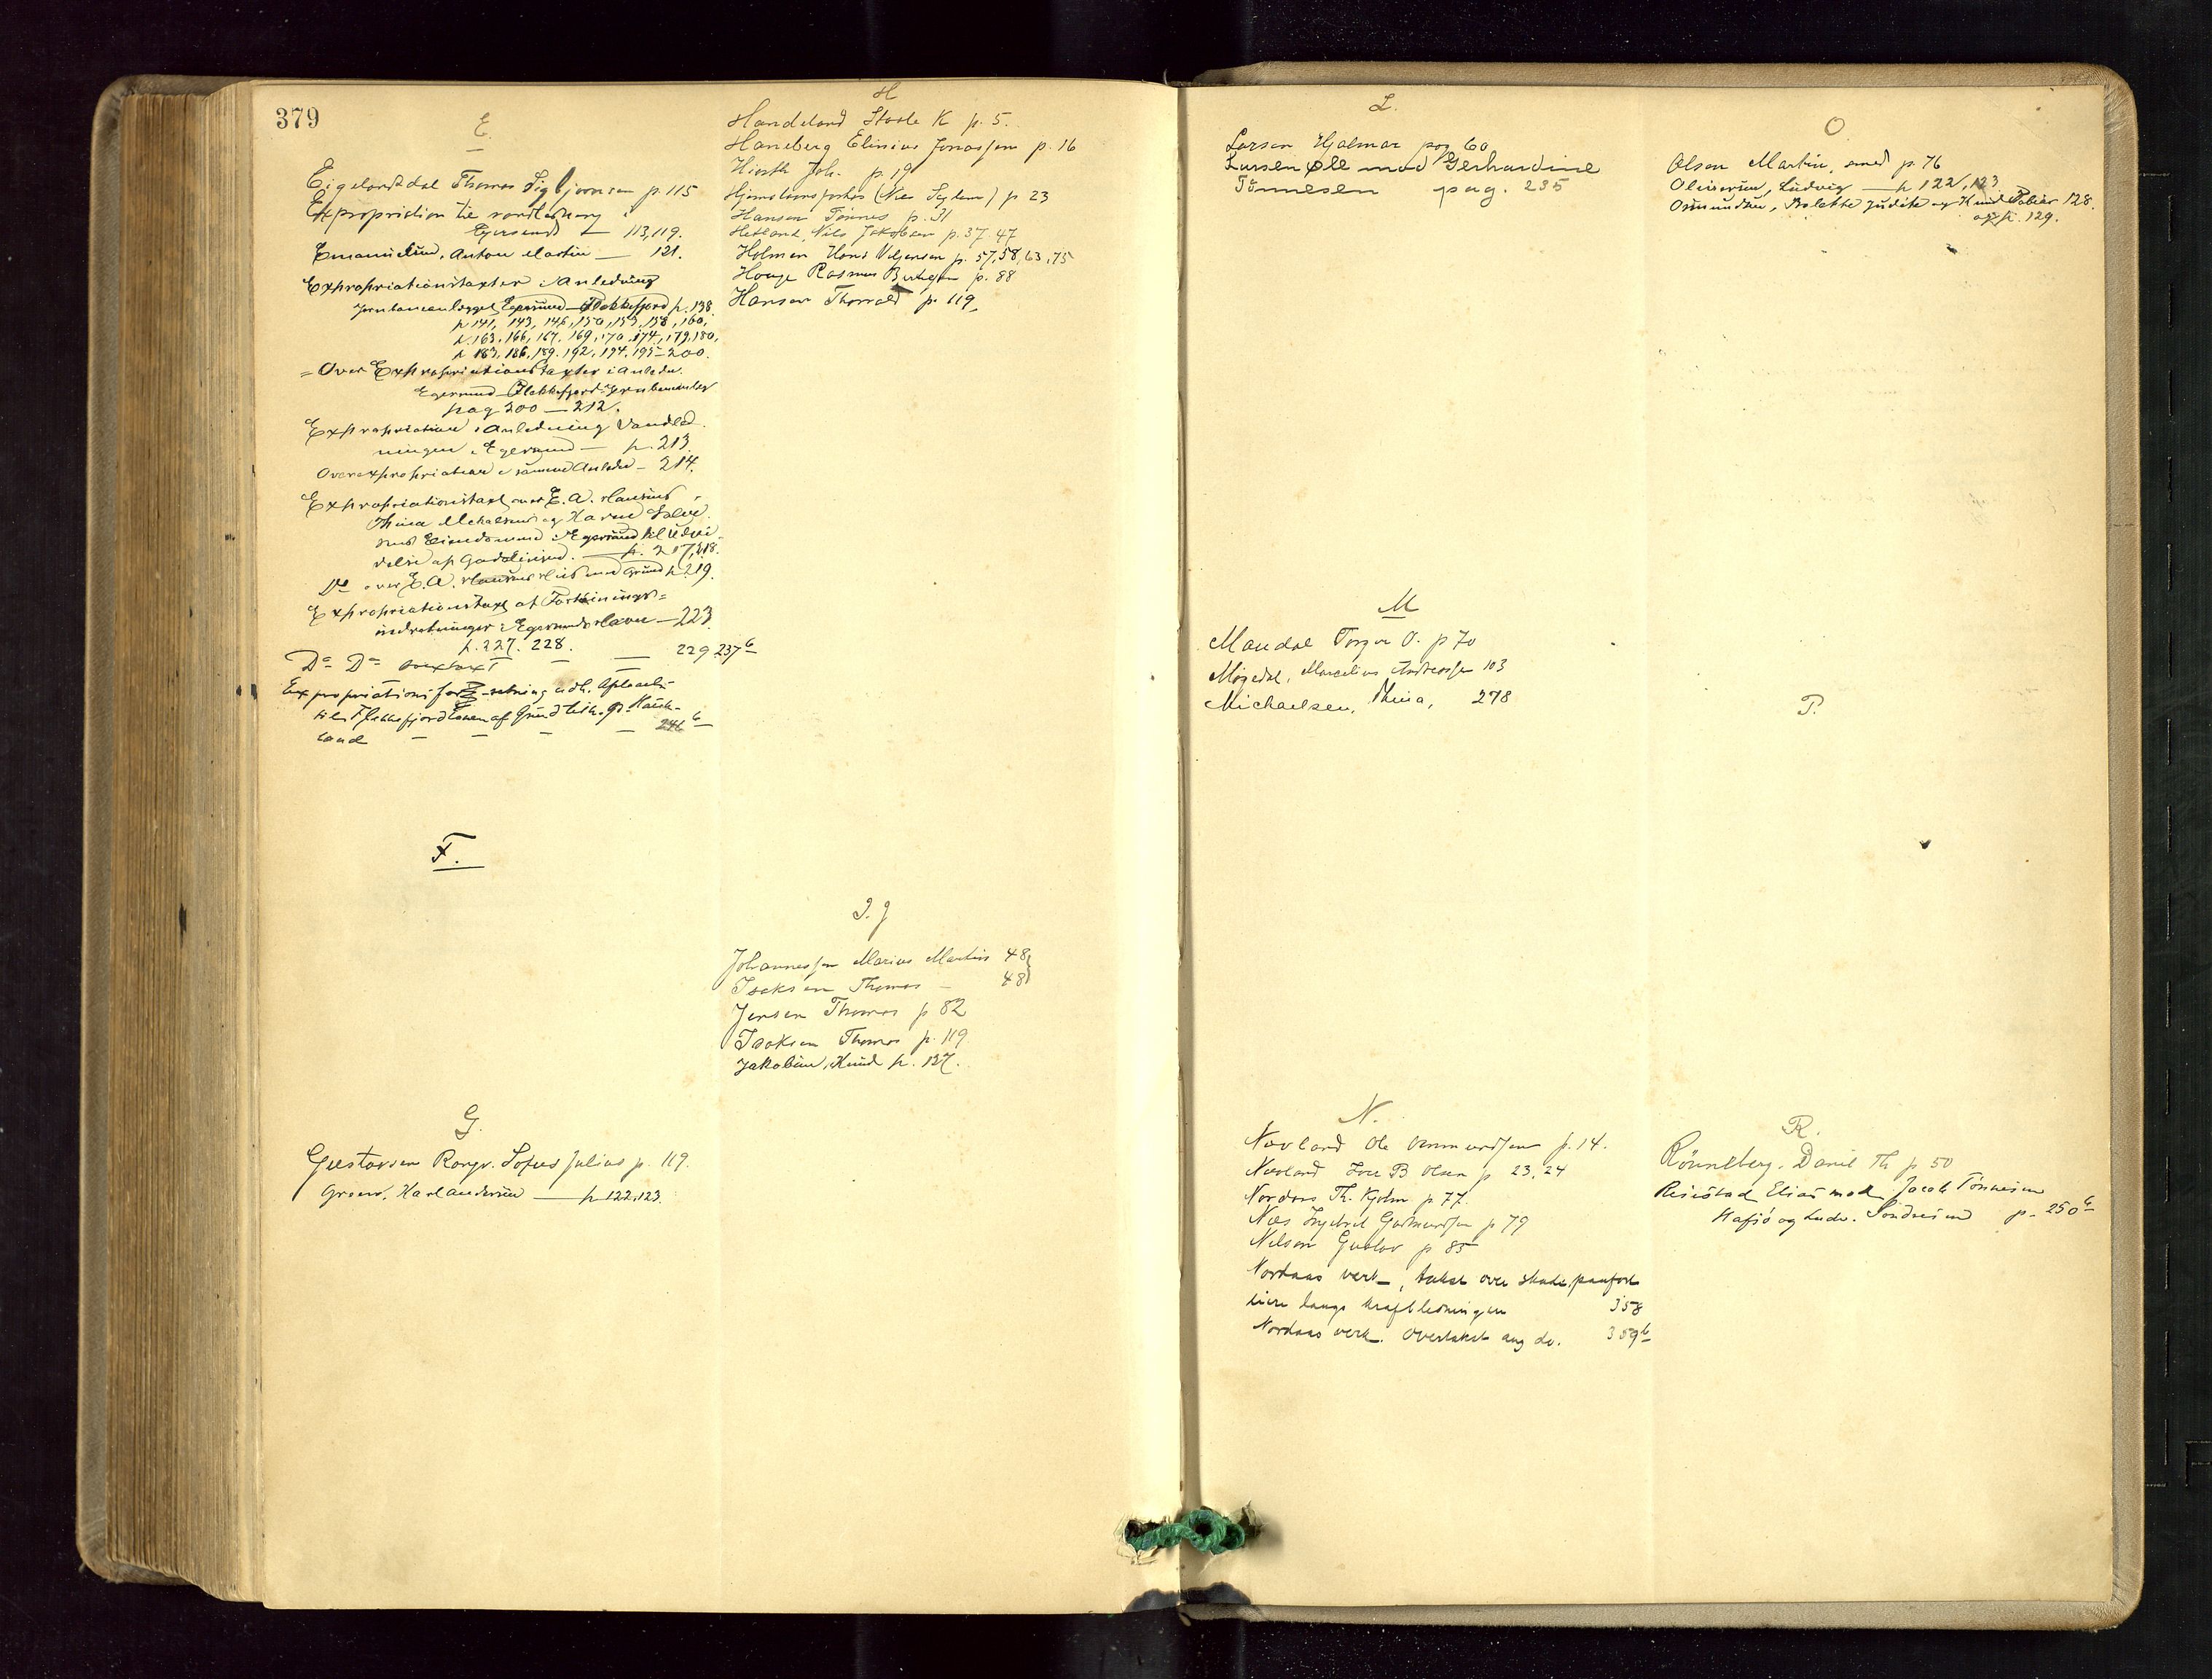 379
E.
Eigelandsdal Thomas Sigbjørnsen p. 115
Expropriation til vandledning i
Egersund — 113, 119.
Emanuelsen, Anton Martin — 121.
Expropriationstaxter i Anledning
Jernbaneanlægget Egersund—Flekkefjord p. 138
p 141, 143, 146, 150, 153, 158, 160,
p. 163, 166, 167, 169, 170, 174, 179, 180,
p 183, 186, 189, 192, 194, 195–200.
= Over Expropriationstaxter i Anledn.
Egersund—Flekkefjord Jernbaneanlæg
pag 200 — 212.
Expropriation i Anledning Vandled
ningen i Egersund — p. 213.
Overexpropriation i samme Anledn — 214.
Expropriationstaxt over E. A.
Thina Michaelsens og
Eiendomme i Egersund til Udvi
delse af Gadelinien. — p. 217, 218.
Do over E. A. Grund p. 219.
Expropriationstaxt af Fortøinings=
indretninger i Egersunds Havn — 223.
p. 227. 228.
Do Do overtaxt — — 229 237b
Expropriationsforretning
til Flekkefjordbanen af Grund
land — — — — 246b
F.
G.
Gustavsen Rasmus Sofus Julius p. 119.
Karl Andersen — p 122, 123.
H
Handeland Staale K p. 5.
Haneberg Elinius Jonassen p. 16
Hiorth Joh. p. 19
(Nies System) p 23
Hansen Tønnes p. 31
Hetland, Nils Jakobsen p. 37. 47
Holmen Hans Vilgensen p. 57, 58, 63, 75
Hauge Rasmus p. 88
Hansen Thorvald p. 119,
I. J
Johannessen Marius Martin 48
Isaksen Thomas — 48
Jensen Thomas p 82
Isaksen Thomas p. 119
Jakobsen, Knud p. 137.
L.
Larsen Hjalmar pag 60
Larsen Ole mod Gerhardine
Tønnesen pag. 235
M
Maudal Torger O. p 70
Møgedal, Marcelius Andreassen 103
Michaelsen, Thina, 278
N.
Navland Ole Ommundsen p. 14.
Navland Iver B Olsen p 23, 24
Nordaas Th. Kjohn p. 77.
Næs Ingebret Gudmundsen p 79
Nilsen Gustav p 85
Nordaas verk, takst over skade paaført
eiere langs kraftledningen 358
Nordaas verk. Overtakst ang do. 359b
O
Olsen Martin, smed p. 76
Oliversen, Ludvig — p 122, 123.
Osmundsen, Bolette Judite og Knud Tobias 128.
og p. 129.
P.
R.
Rönneberg, Daniel Th p. 50
Reiestad Elias mod Jacob Tønnesen
Hafsö og Ludv. Söndresen p. 250b